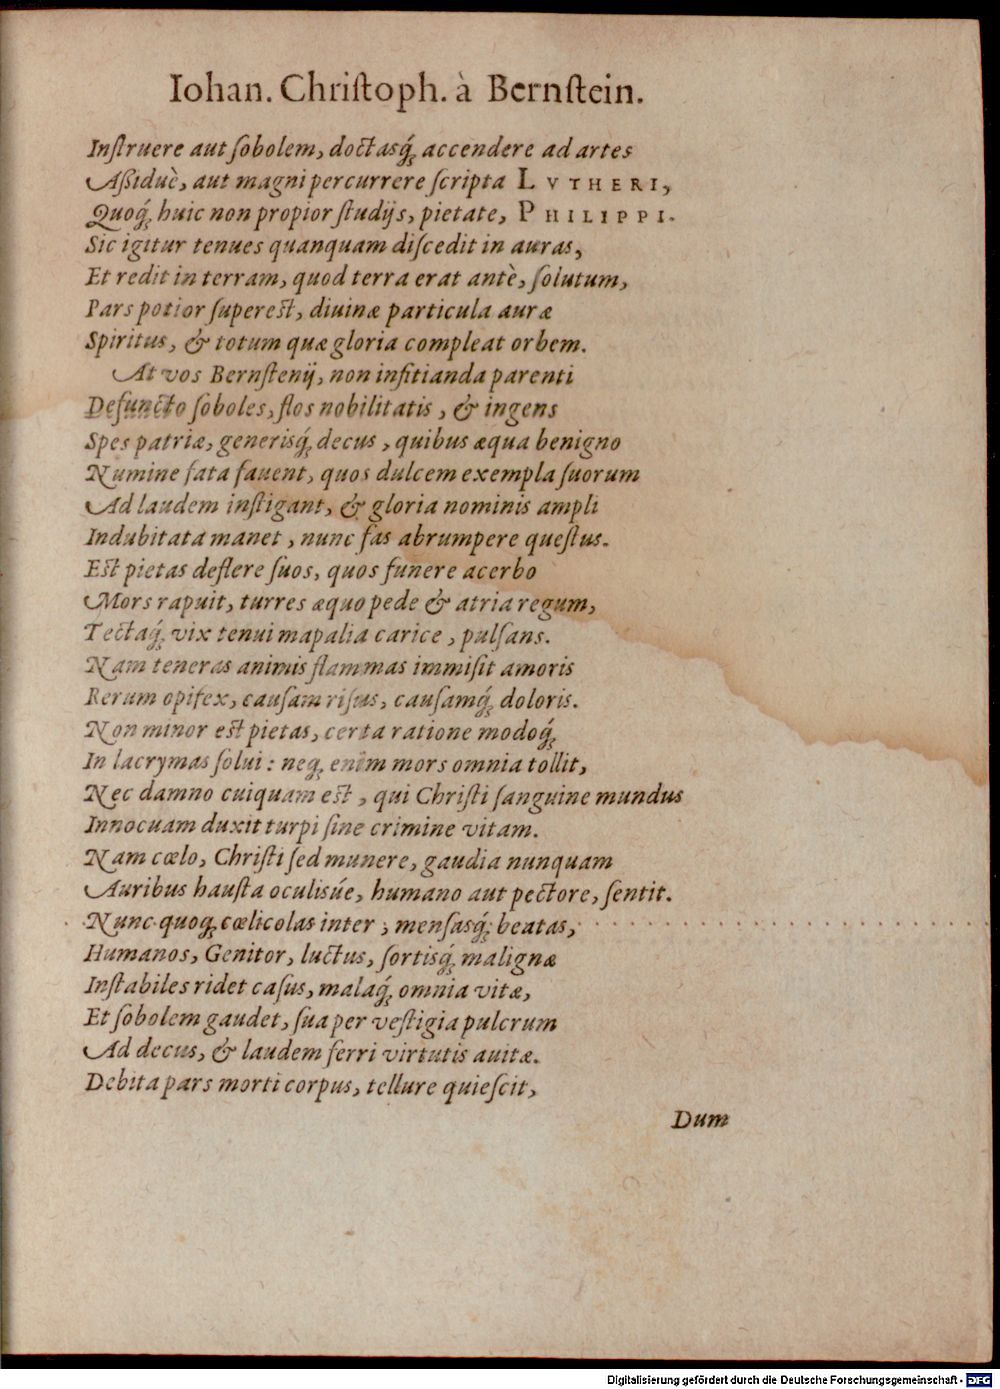 Iohan. Chriſtoph. à Bernſtein.
Inſtruere aut ſobolem, doctasq́; accendere ad artes
Aßiduè, aut magni percurrere ſcripta LVTHERI,
Quoq́; huic non propior ſtudijs, pietate, PHILIPPI.
Sic igitur tenues quanquam diſcedit in auras,
Et redit in terram, quod terra erat antè, ſolutum,
Pars potior ſupereſt, diuinæ particula auræ
Spiritus, & totum quæ gloria compleat orbem.
At vos Bernſtenij, non inſitianda parenti
Defuncto ſoboles, flos nobilitatis, & ingens
Spes patriæ, generisq́; decus, quibus æqua benigno
Numine fata fauent, quos dulcem exempla ſuorum
Ad laudem inſtigant, & gloria nominis ampli
Indubitata manet, nunc fas abrumpere queſtus.
Eſt pietas deflere ſuos, quos funere acerbo
Mors rapuit, turres æquo pede & atria regum,
Tectaq́; vix tenui mapalia carice, pulſans.
Nam teneras animis flammas immiſit amoris
Rerum opifex, cauſam riſus, cauſamq́; doloris.
Non minor eſt pietas, certa ratione modoq́;
In lacrymas ſolui: neq; enim mors omnia tollit,
Nec damno cuiquam eſt, qui Chriſti ſanguine mundus
Innocuam duxit turpi ſine crimine vitam.
Nam cœlo, Chriſti ſed munere, gaudia nunquam
Auribus hauſta oculisúe, humano aut pectore, ſentit.
Nunc quoq; cœlicolas inter, menſasq́; beatas,
Humanos, Genitor, luctus, ſortisq́; malignæ
Inſtabiles ridet caſus, malaq́; omnia vitæ,
Et ſobolem gaudet, ſua per veſtigia pulcrum
Ad decus, & laudem ferri virtutis auitæ.
Debita pars morti corpus, tellure quieſcit,
Dum
Digitalisierung gefördert durch die Deutsche Forschungsgemeinschaft - DFG